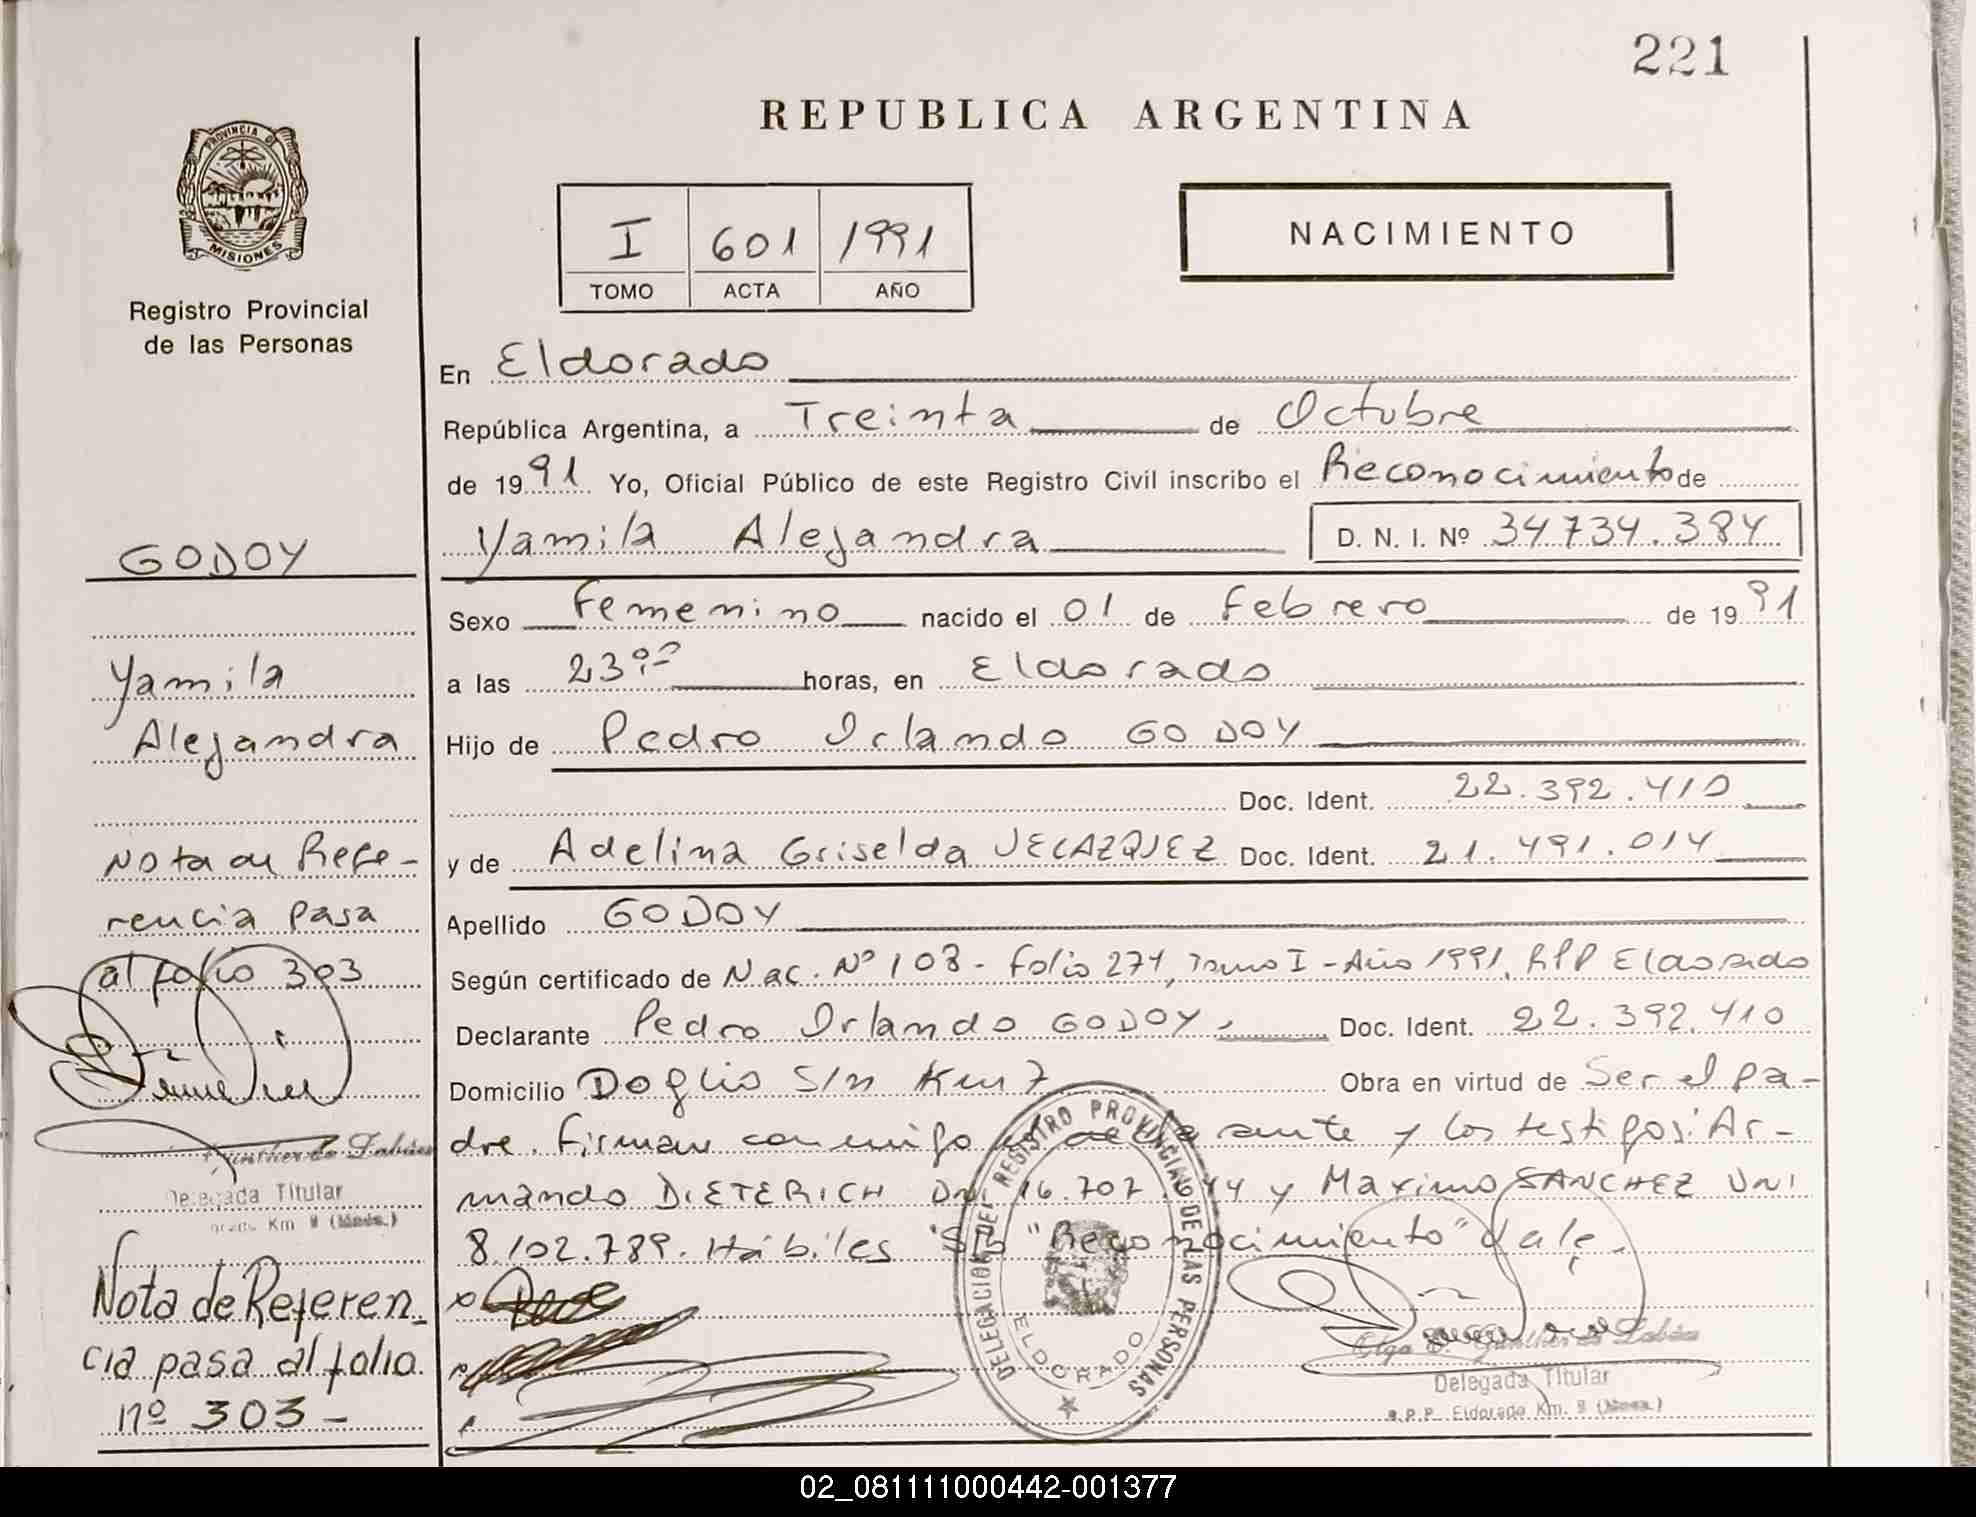 221
REPUBLICA ARGENTINA
PROVINCIA DE
MISIONES
Registro Provincial
de las Personas
I 601 1991
TOMO ACTA AÑO
NACIMIENTO
En Eldorado
República Argentina, a Treinta de Octubre
de 1991 Yo, Oficial Público de este Registro Civil inscribo el Reconocimiento de
Yamila Alejandra D. N. I. Nº 34734.384
Sexo Femenino nacido el 01 de Febrero de 1991
a las 23 horas, en Eldorado
Hijo de Pedro Orlando GODOY
Doc. Ident. 22.392.410
y de Adelina Griselda VELAZQUEZ Doc. Ident. 21.491.014
Apellido GODOY
Según certificado de Nac. Nº 108 - Folio 274, Tomo I - Año 1991, RPP Eldorado
Declarante Pedro Orlando GODOY. Doc. Ident. 22.392.410
Domicilio Doglio S/n Km 7 Obra en virtud de Ser el pa-
dre. Firman conmigo el declarante y los testigos: Ar-
mando DIETERICH DNI 16.707. 44 y Maximo SANCHEZ DNI
8.102.789. Hábiles S/b "Reconocimiento" Vale.
GODOY
Yamila
Alejandra
Nota de Refe-
rencia pasa
al folio 303
Gunther de Labáes
Delegada Titular
Km 9 (Mnes.)
Nota de Referen-
cia pasa al folio
nº 303 -
DELEGACION DEL REGISTRO PROVINCIAL DE LAS PERSONAS
ELDORADO
Olga E. Gunther de Labáes
Delegada Titular
R.P.P. Eldorado Km. 9 (Mnes.)
02_081111000442-001377